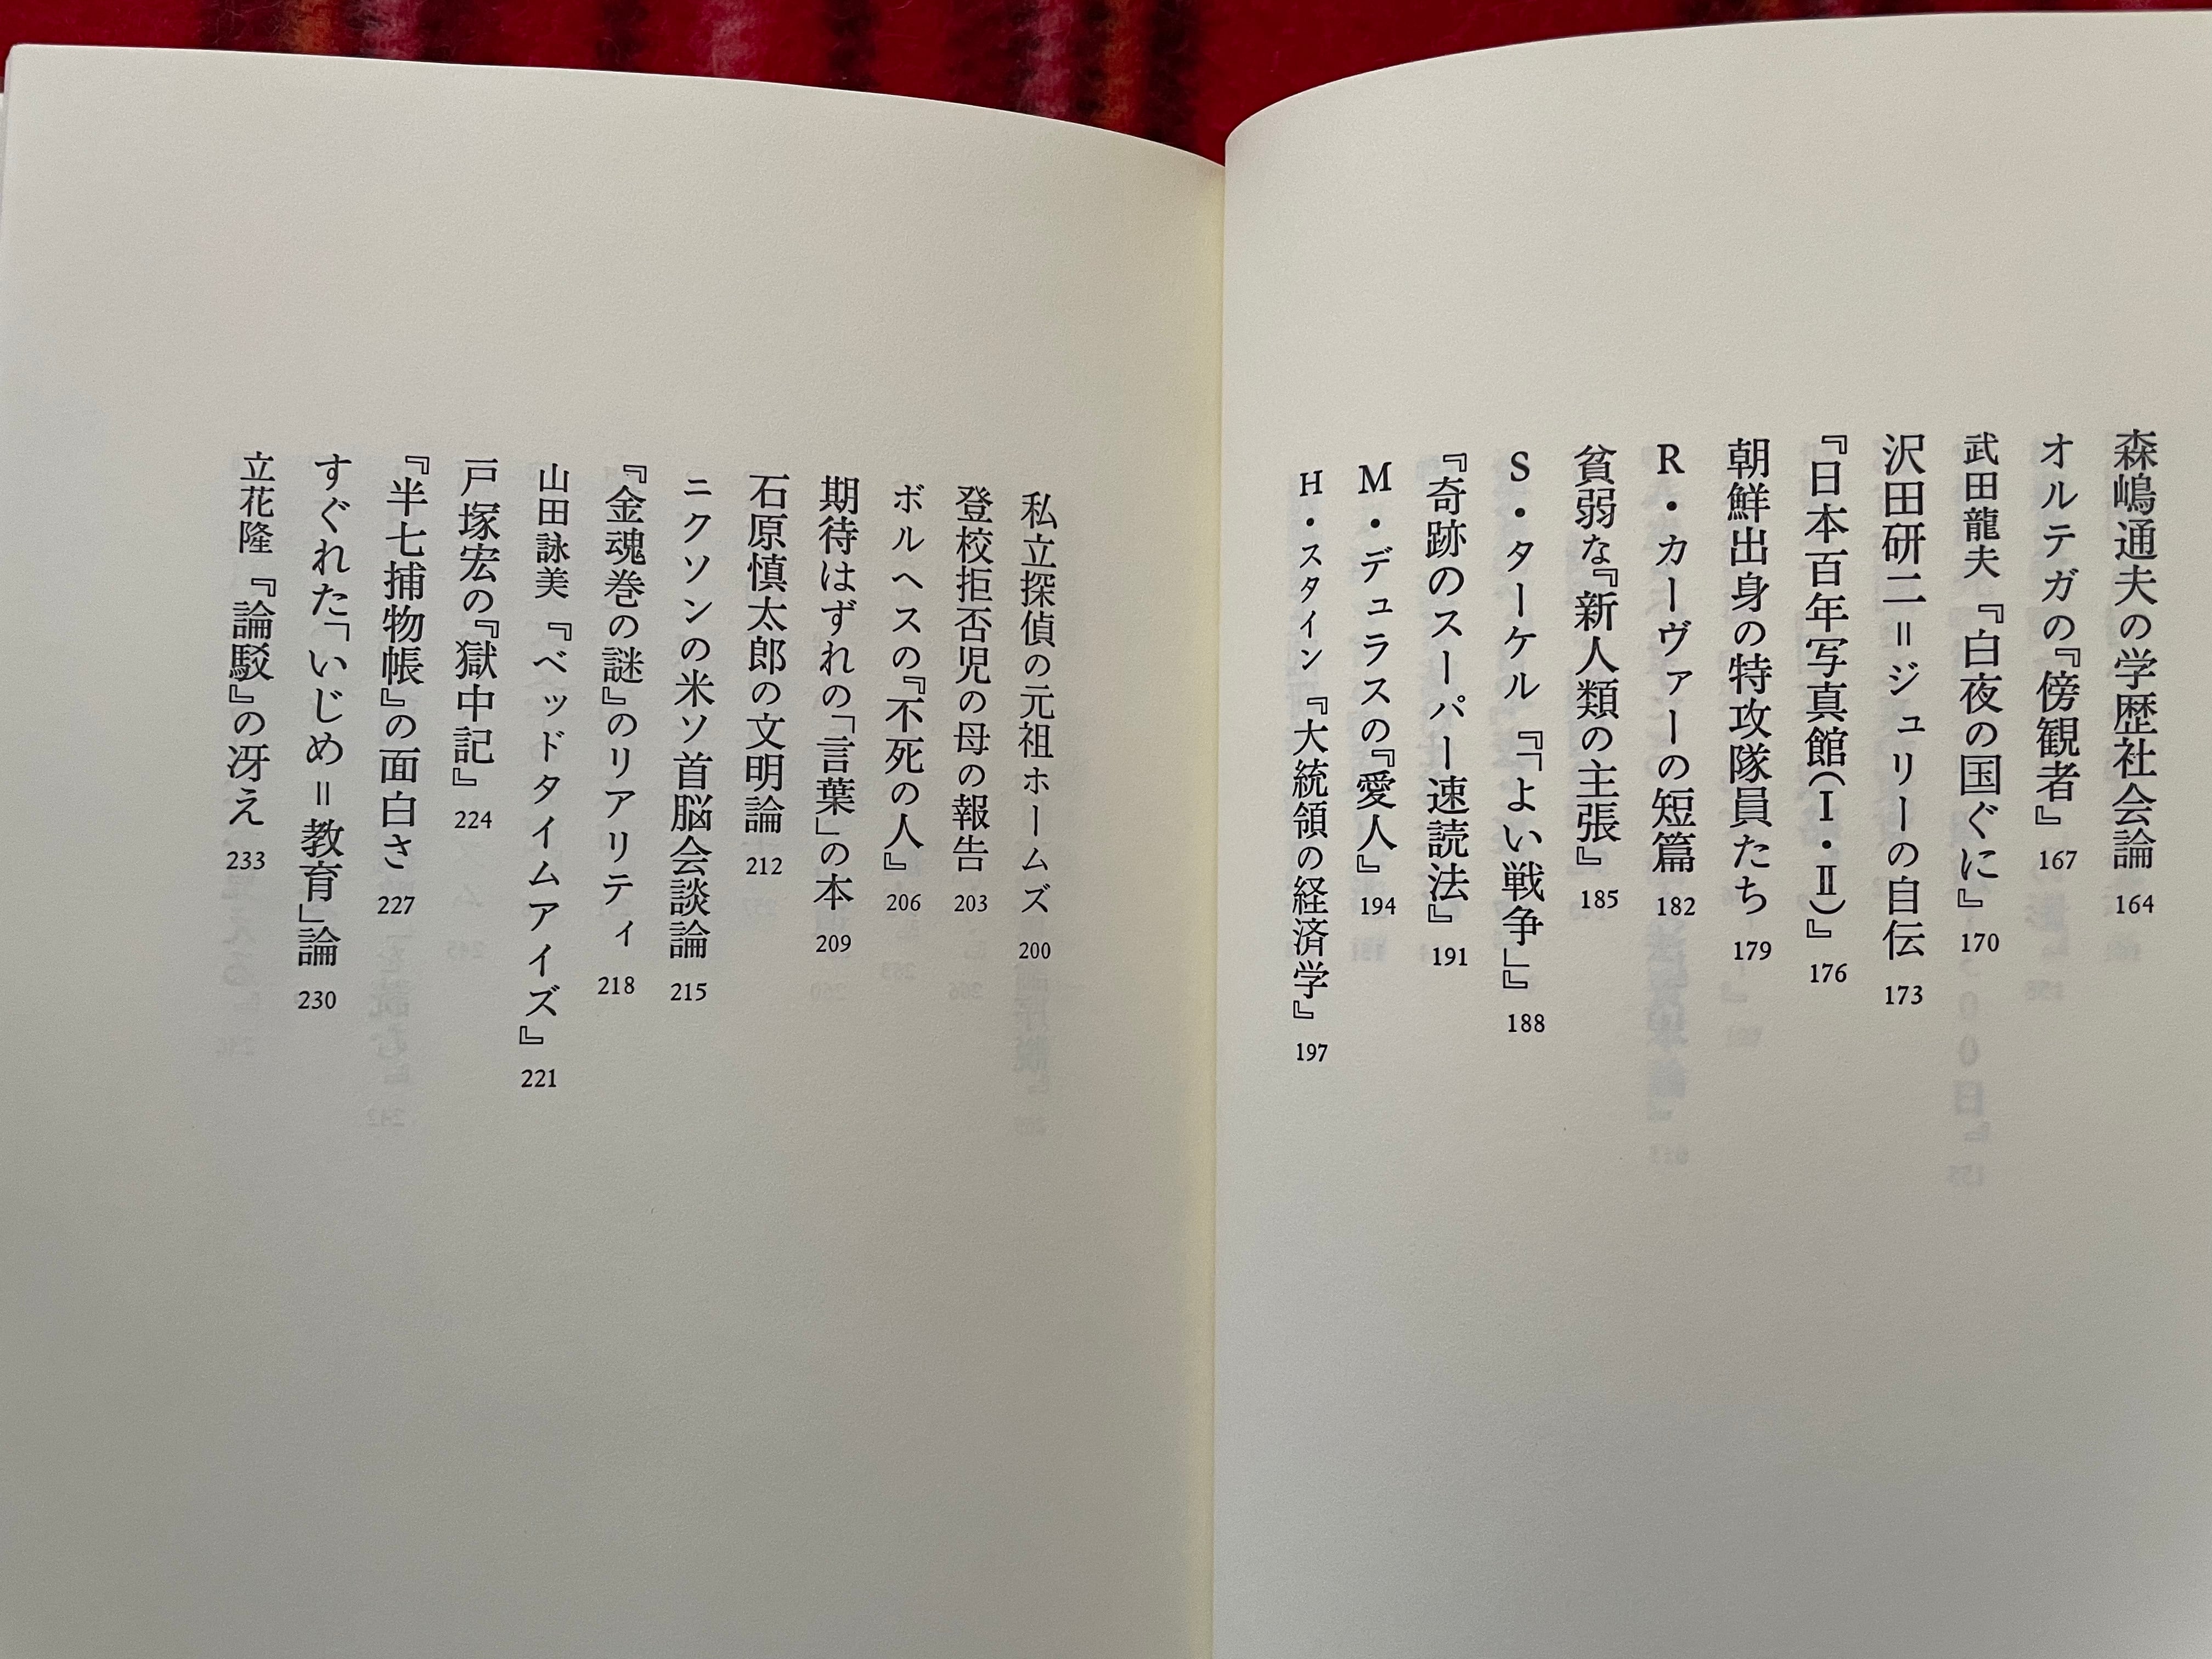 森嶋通夫の学歴社会論 164
オルテガの『傍観者』 167
武田龍夫『白夜の国ぐに』 170
沢田研二＝ジュリーの自伝 173
『日本百年写真館(Ⅰ・Ⅱ)』 176
朝鮮出身の特攻隊員たち 179
R・カーヴァーの短篇 182
貧弱な『新人類の主張』 185
S・ターケル『「よい戦争」』 188
『奇跡のスーパー速読法』 191
M・デュラスの『愛人』 194
H・スタイン『大統領の経済学』 197
私立探偵の元祖ホームズ 200
登校拒否児の母の報告 203
ボルヘスの『不死の人』 206
期待はずれの「言葉」の本 209
石原慎太郎の文明論 212
ニクソンの米ソ首脳会談論 215
『金魂巻の謎』のリアリティ 218
山田詠美『ベッドタイムアイズ』 221
戸塚宏の『獄中記』 224
『半七捕物帳』の面白さ 227
すぐれた「いじめ＝教育」論 230
立花隆『論駁』の冴え 233